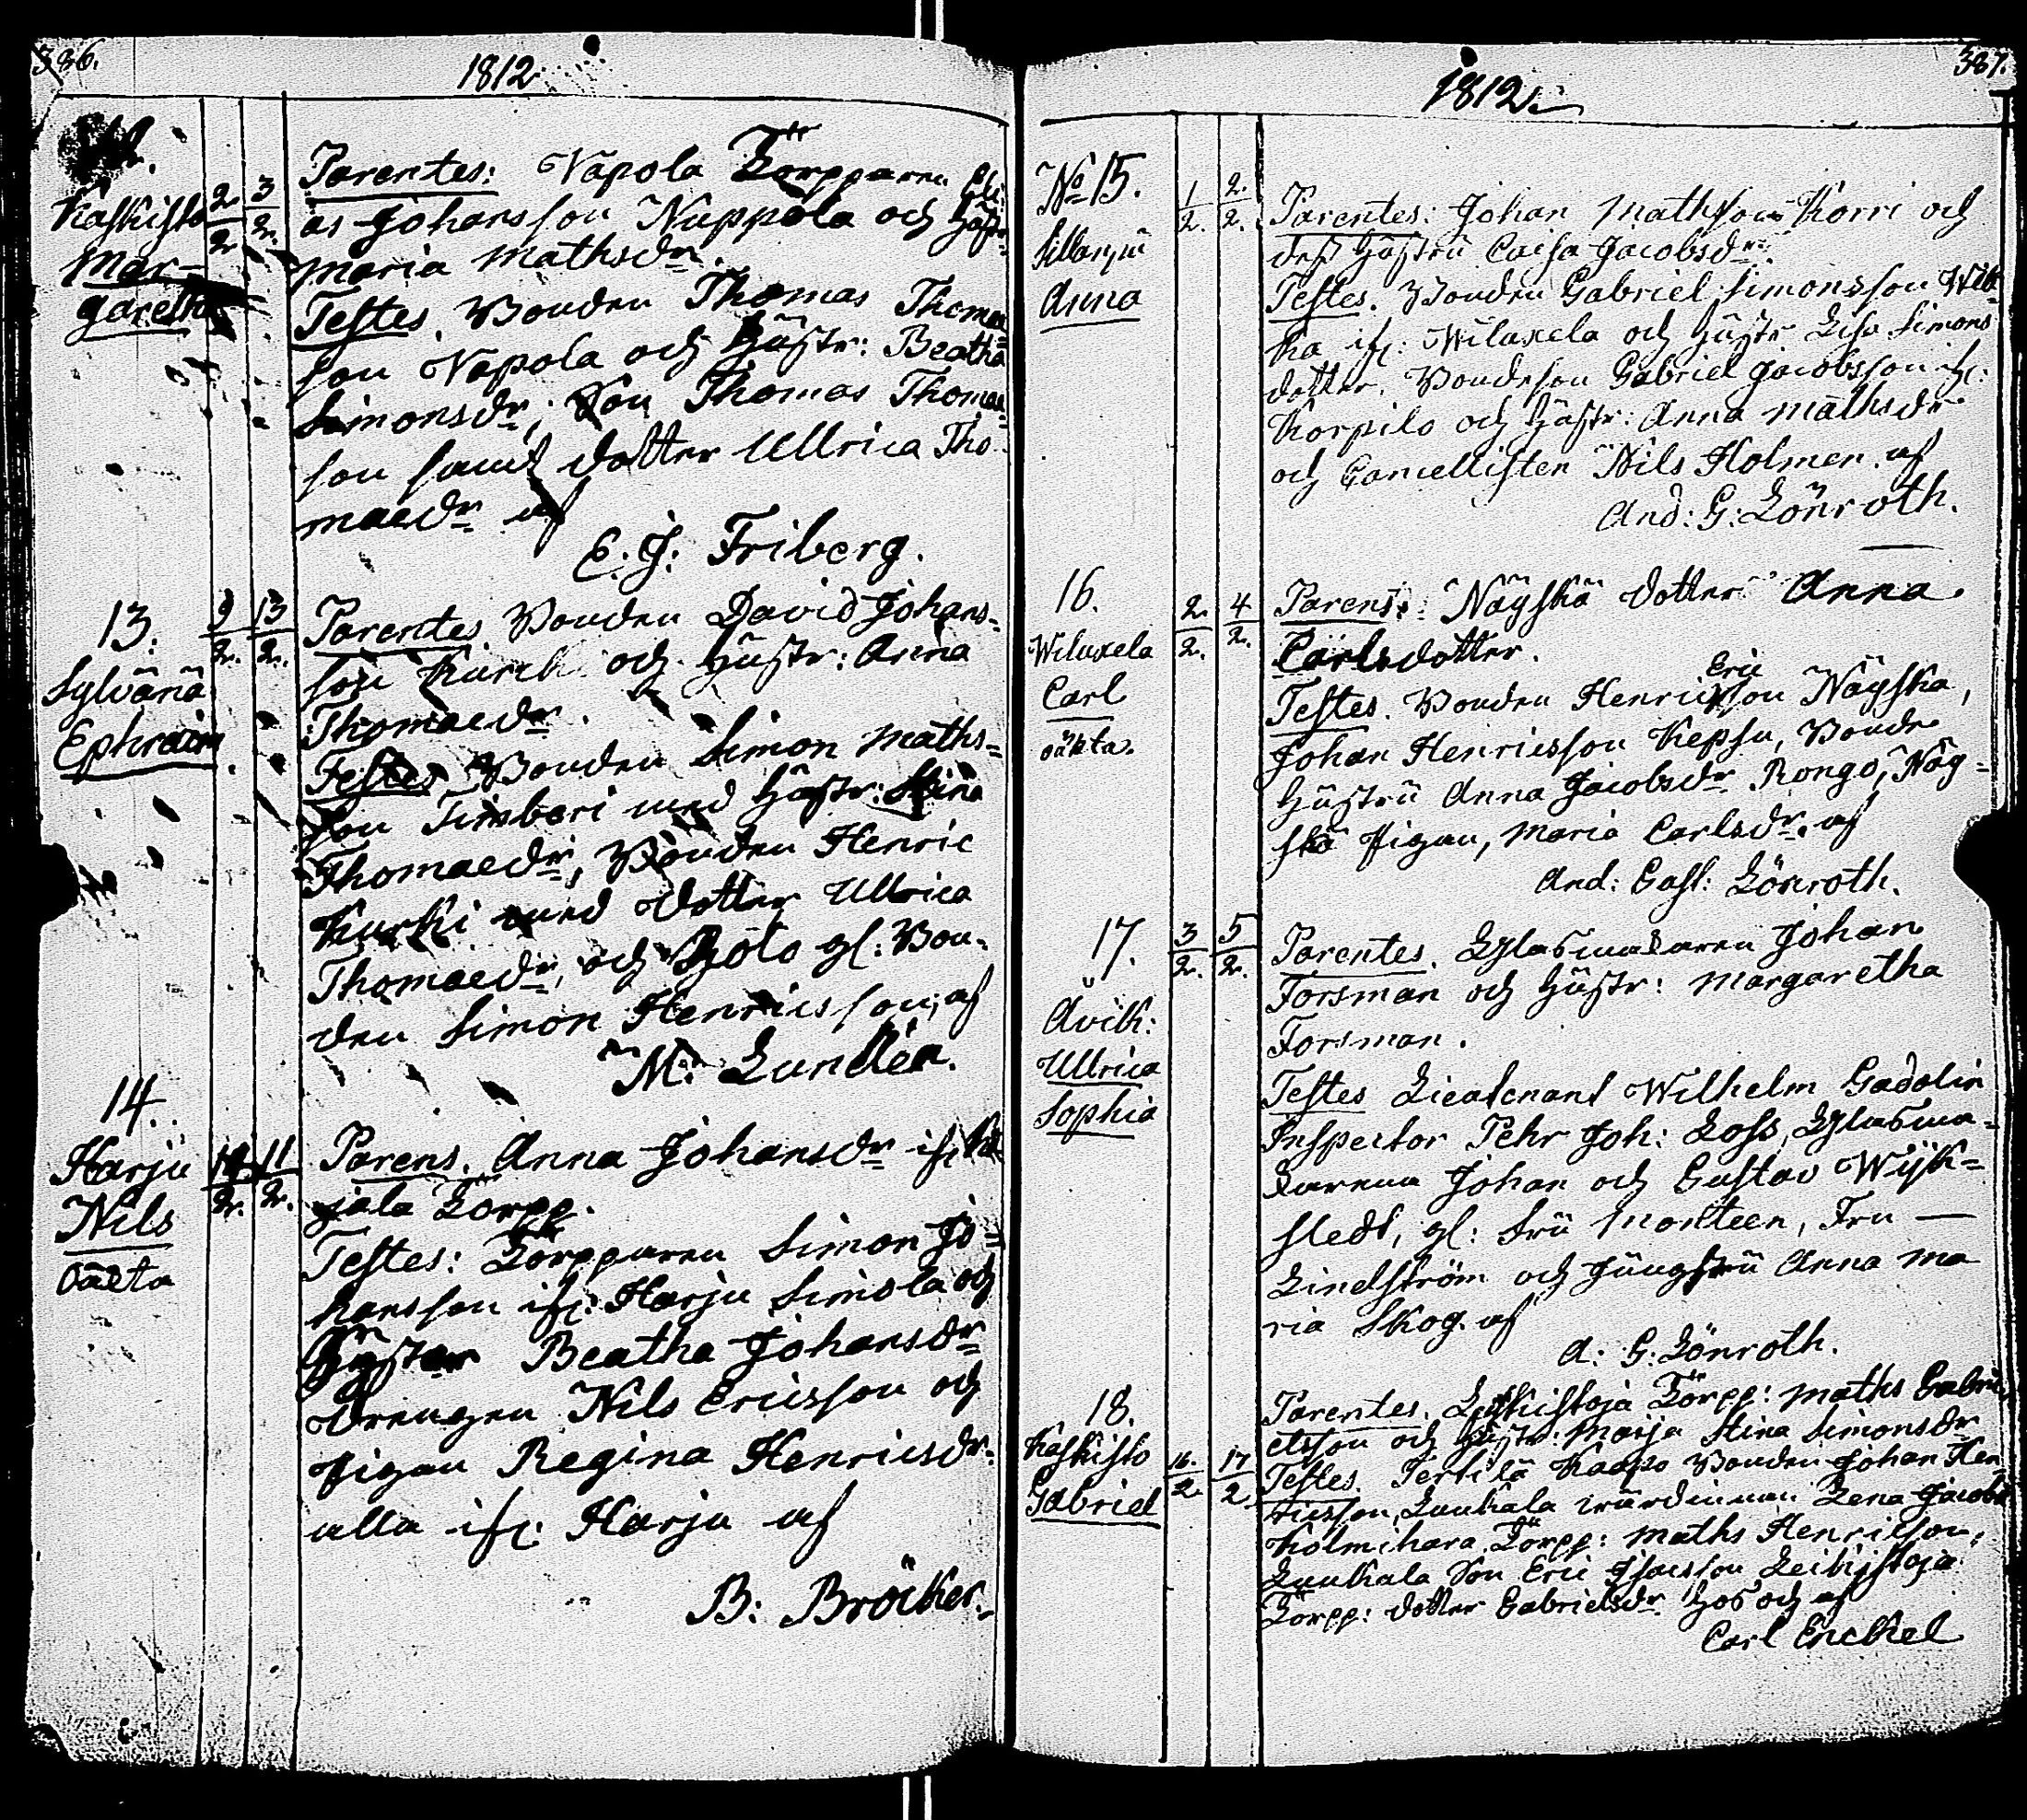 386.
1812
Kaskisto
Mar-
garetha
2/2 3/2
Parentes: Napola Torpparen Eli-
as Johansson Nuppola och hustr:
Maria Mathsdr.
Testes. Bonden Thomas Thomae
son Napola och Hustr: Beatha
Simonsdr; Son Thomas Thomae
son samt dotter Ullrica Tho-
maedr af
E. J. Friberg.
13.
Sylvänä
Ephraim
9/2. 13/2.
Parentes. Bonden David Johans-
son Kurck och hustr: Anna
Thomaedr.
Testes Bonden Simon Maths-
son Timberi med hustr: Stina
Thomaedr, Bonden Henric
Kurki med dotter Ullrica
Thomaedr, och gl: Bon-
den Simon Henricsson, af
M: Lundlén.
14.
Harju
Nils
oäcta
11/2.
Parens. Anna Johansdr ifr.
jala Torpp.
Testes: Torpparen Simon Jo-
hansson ifr: Harju Simola och
hustr Beatha Johansdr
drengen Nils Ericsson och
Pigan Regina Henricsdr.
alla ifr. Harju af
B: Bröcker.
387.
1812.
No 15.
Sillanpä
Anna
1/2. 2./2.
Parentes: Johan Mathsson Korri och
dess Hustru Caisa Jacobsdr.
Testes. Bonden Gabriel Simonsson Wila-
ka ifr: Wiluxela och Hustr Lisa Simons
dotter, Bondeson Gabriel Jacobsson ifr:
Korpilo och Hustr: Anna Mathsdr
och Cancellisten Nils Holmen af
And: G: Lönroth.
16.
Wiluxela
Carl
oäkta.
2./2. 4/2.
Parens: Näyskä dotter Anna
Carlsdotter.
Testes. Bonden Henric Ericsson Näyskä,
Johan Henricsson Kepsu, Bonde
Hustru Anna Jacobsdr Rongo, Näy-
skä Pigan, Maria Carlsdr. af
And: Gust: Lönroth.
17.
Åvik:
Ullrica
Sophia
3/2. 5/2.
Parentes. Glasmakaren Johan
Forsman och Hustr: Margaretha
Forsman.
Testes Lieutenant Wilhelm Gadolin
Inspector Pehr Joh: Loss, Glasma-
karena Johan och Gustav Wijk-
stedt, gl: Fru Monteen, Fru —
Lindström och Jungfru Anna Ma
ria Skog. af
A: G: Lönroth.
18.
Kaskisto
Gabriel
16./2. 17/2
Parentes. Leikistoja Torpp: Maths Gabri-
elsson och Hustr: Maija Stina Simonsdr
Testes. Pertilä Kaapo Bonden Johan Hen
ricsson, Laukala wärdinnan Lena Jacobs
Kolmihara Torpp: Maths Henricsson,
Laukala Son Eric Isacsson Leikistoja
Torpp: dotter Gabrielsdr hos och af
Carl Enckel